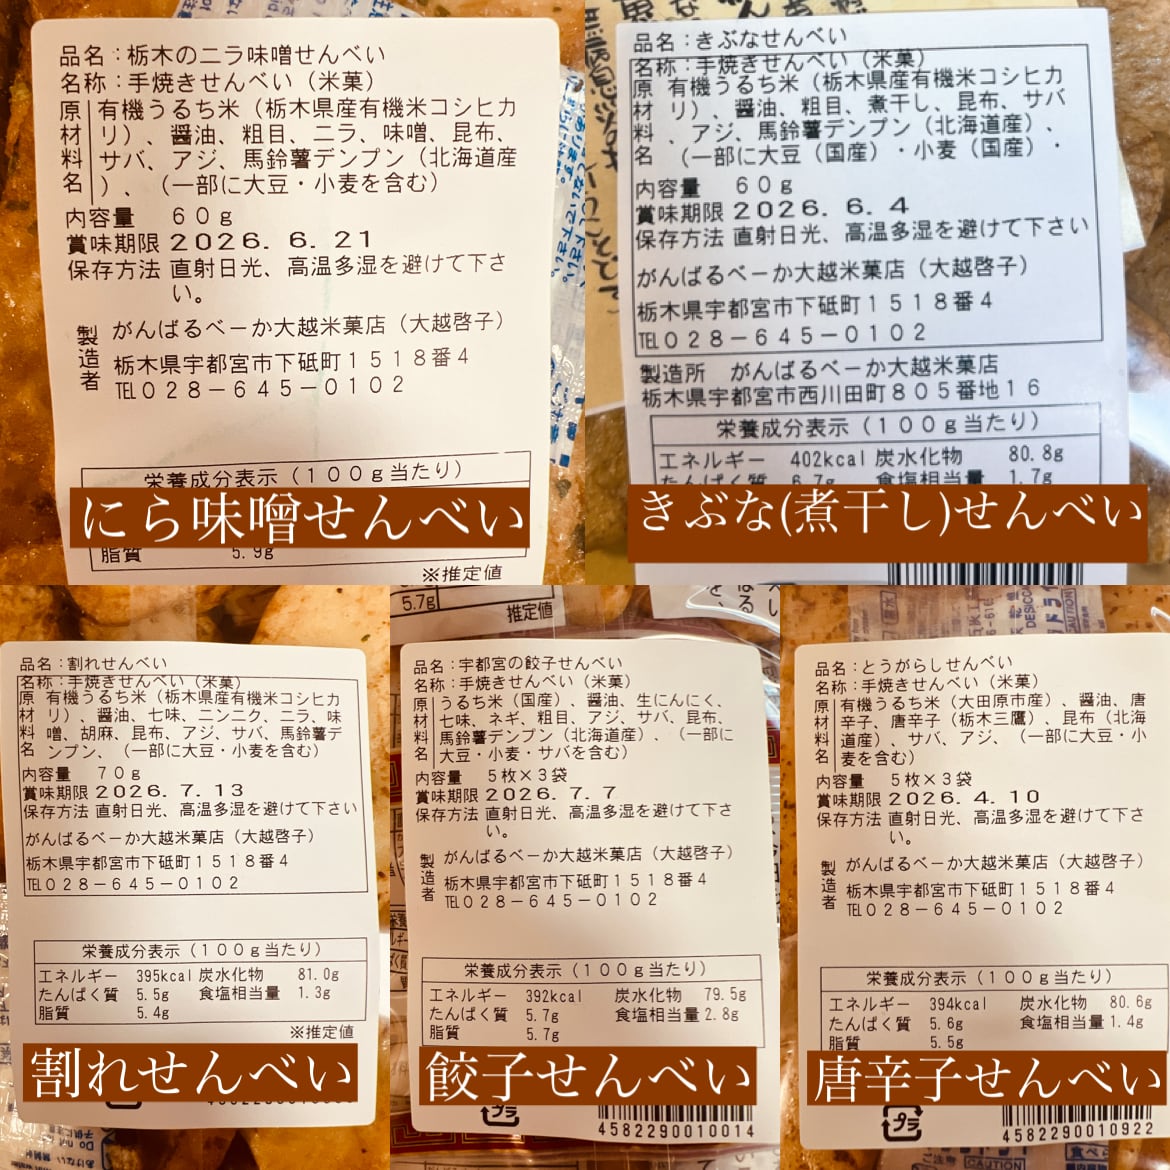 品名：栃木のニラ味噌せんべい
名称：手焼きせんべい（米菓）
原材料名
有機うるち米（栃木県産有機米コシヒカ
リ）、醤油、粗目、ニラ、味噌、昆布、
サバ、アジ、馬鈴薯デンプン（北海道産
）、（一部に大豆・小麦を含む）
内容量　６０ｇ
賞味期限 2026. 6. 21
保存方法 直射日光、高温多湿を避けて下さ
い。
製造者
がんばるべーか大越米菓店（大越啓子）
栃木県宇都宮市下砥町１５１８番４
TEL０２８－６４５－０１０２
栄養成分表示（１００ｇ当たり）
にら味噌せんべい
脂質 5.9g
※推定値
品名：きぶなせんべい
名称：手焼きせんべい（米菓）
原材料名
有機うるち米（栃木県産有機米コシヒカ
リ）、醤油、粗目、煮干し、昆布、サバ
、アジ、馬鈴薯デンプン（北海道産）、
（一部に大豆（国産）・小麦（国産）・
内容量　６０ｇ
賞味期限 2026. 6. 4
保存方法 直射日光、高温多湿を避けて下さい
がんばるべーか大越米菓店（大越啓子）
栃木県宇都宮市下砥町１５１８番４
TEL０２８－６４５－０１０２
製造所　がんばるべーか大越米菓店
栃木県宇都宮市西川田町８０５番地１６
栄養成分表示（１００ｇ当たり）
エネルギー 402kcal 炭水化物 80.8g
たんぱく質 6.7g 食塩相当量 1.7g
きぶな(煮干し)せんべい
品名：割れせんべい
名称：手焼きせんべい（米菓）
原材料名
有機うるち米（栃木県産有機米コシヒカ
リ）、醤油、七味、ニンニク、ニラ、味
噌、胡麻、昆布、アジ、サバ、馬鈴薯デ
ンプン、（一部に大豆・小麦を含む）
内容量　７０ｇ
賞味期限 2026. 7. 13
保存方法 直射日光、高温多湿を避けて下さい
がんばるべーか大越米菓店（大越啓子）
栃木県宇都宮市下砥町１５１８番４
TEL０２８－６４５－０１０２
栄養成分表示（１００ｇ当たり）
エネルギー 395kcal 炭水化物 81.0g
たんぱく質 5.5g 食塩相当量 1.3g
脂質 5.4g
※推定値
割れせんべい
5.7g
推定値
品名：宇都宮の餃子せんべい
名称：手焼きせんべい（米菓）
原材料名
うるち米（国産）、醤油、生にんにく、
七味、ネギ、粗目、アジ、サバ、昆布、
馬鈴薯デンプン（北海道産）、（一部に
大豆・小麦・サバを含む）
内容量　５枚×３袋
賞味期限 2026. 7. 7
保存方法 直射日光、高温多湿を避けて下さ
い。
製造者
がんばるべーか大越米菓店（大越啓子）
栃木県宇都宮市下砥町１５１８番４
TEL０２８－６４５－０１０２
栄養成分表示（１００ｇ当たり）
エネルギー 392kcal 炭水化物 79.5g
たんぱく質 5.7g 食塩相当量 2.8g
脂質 5.7g
餃子せんべい
プラ
4582290010014
品名：とうがらしせんべい
名称：手焼きせんべい（米菓）
原材料名
有機うるち米（大田原市産）、醤油、唐
辛子、唐辛子（栃木三鷹）、昆布（北海
道産）、サバ、アジ、（一部に大豆・小
麦を含む）
内容量　５枚×３袋
賞味期限 2026. 4. 10
保存方法 直射日光、高温多湿を避けて下さ
い。
製造者
がんばるべーか大越米菓店（大越啓子）
栃木県宇都宮市下砥町１５１８番４
TEL０２８－６４５－０１０２
栄養成分表示（１００ｇ当たり）
エネルギー 394kcal 炭水化物 80.6g
たんぱく質 5.6g 食塩相当量 1.4g
脂質 5.5g
唐辛子せんべい
プラ
4582290010922